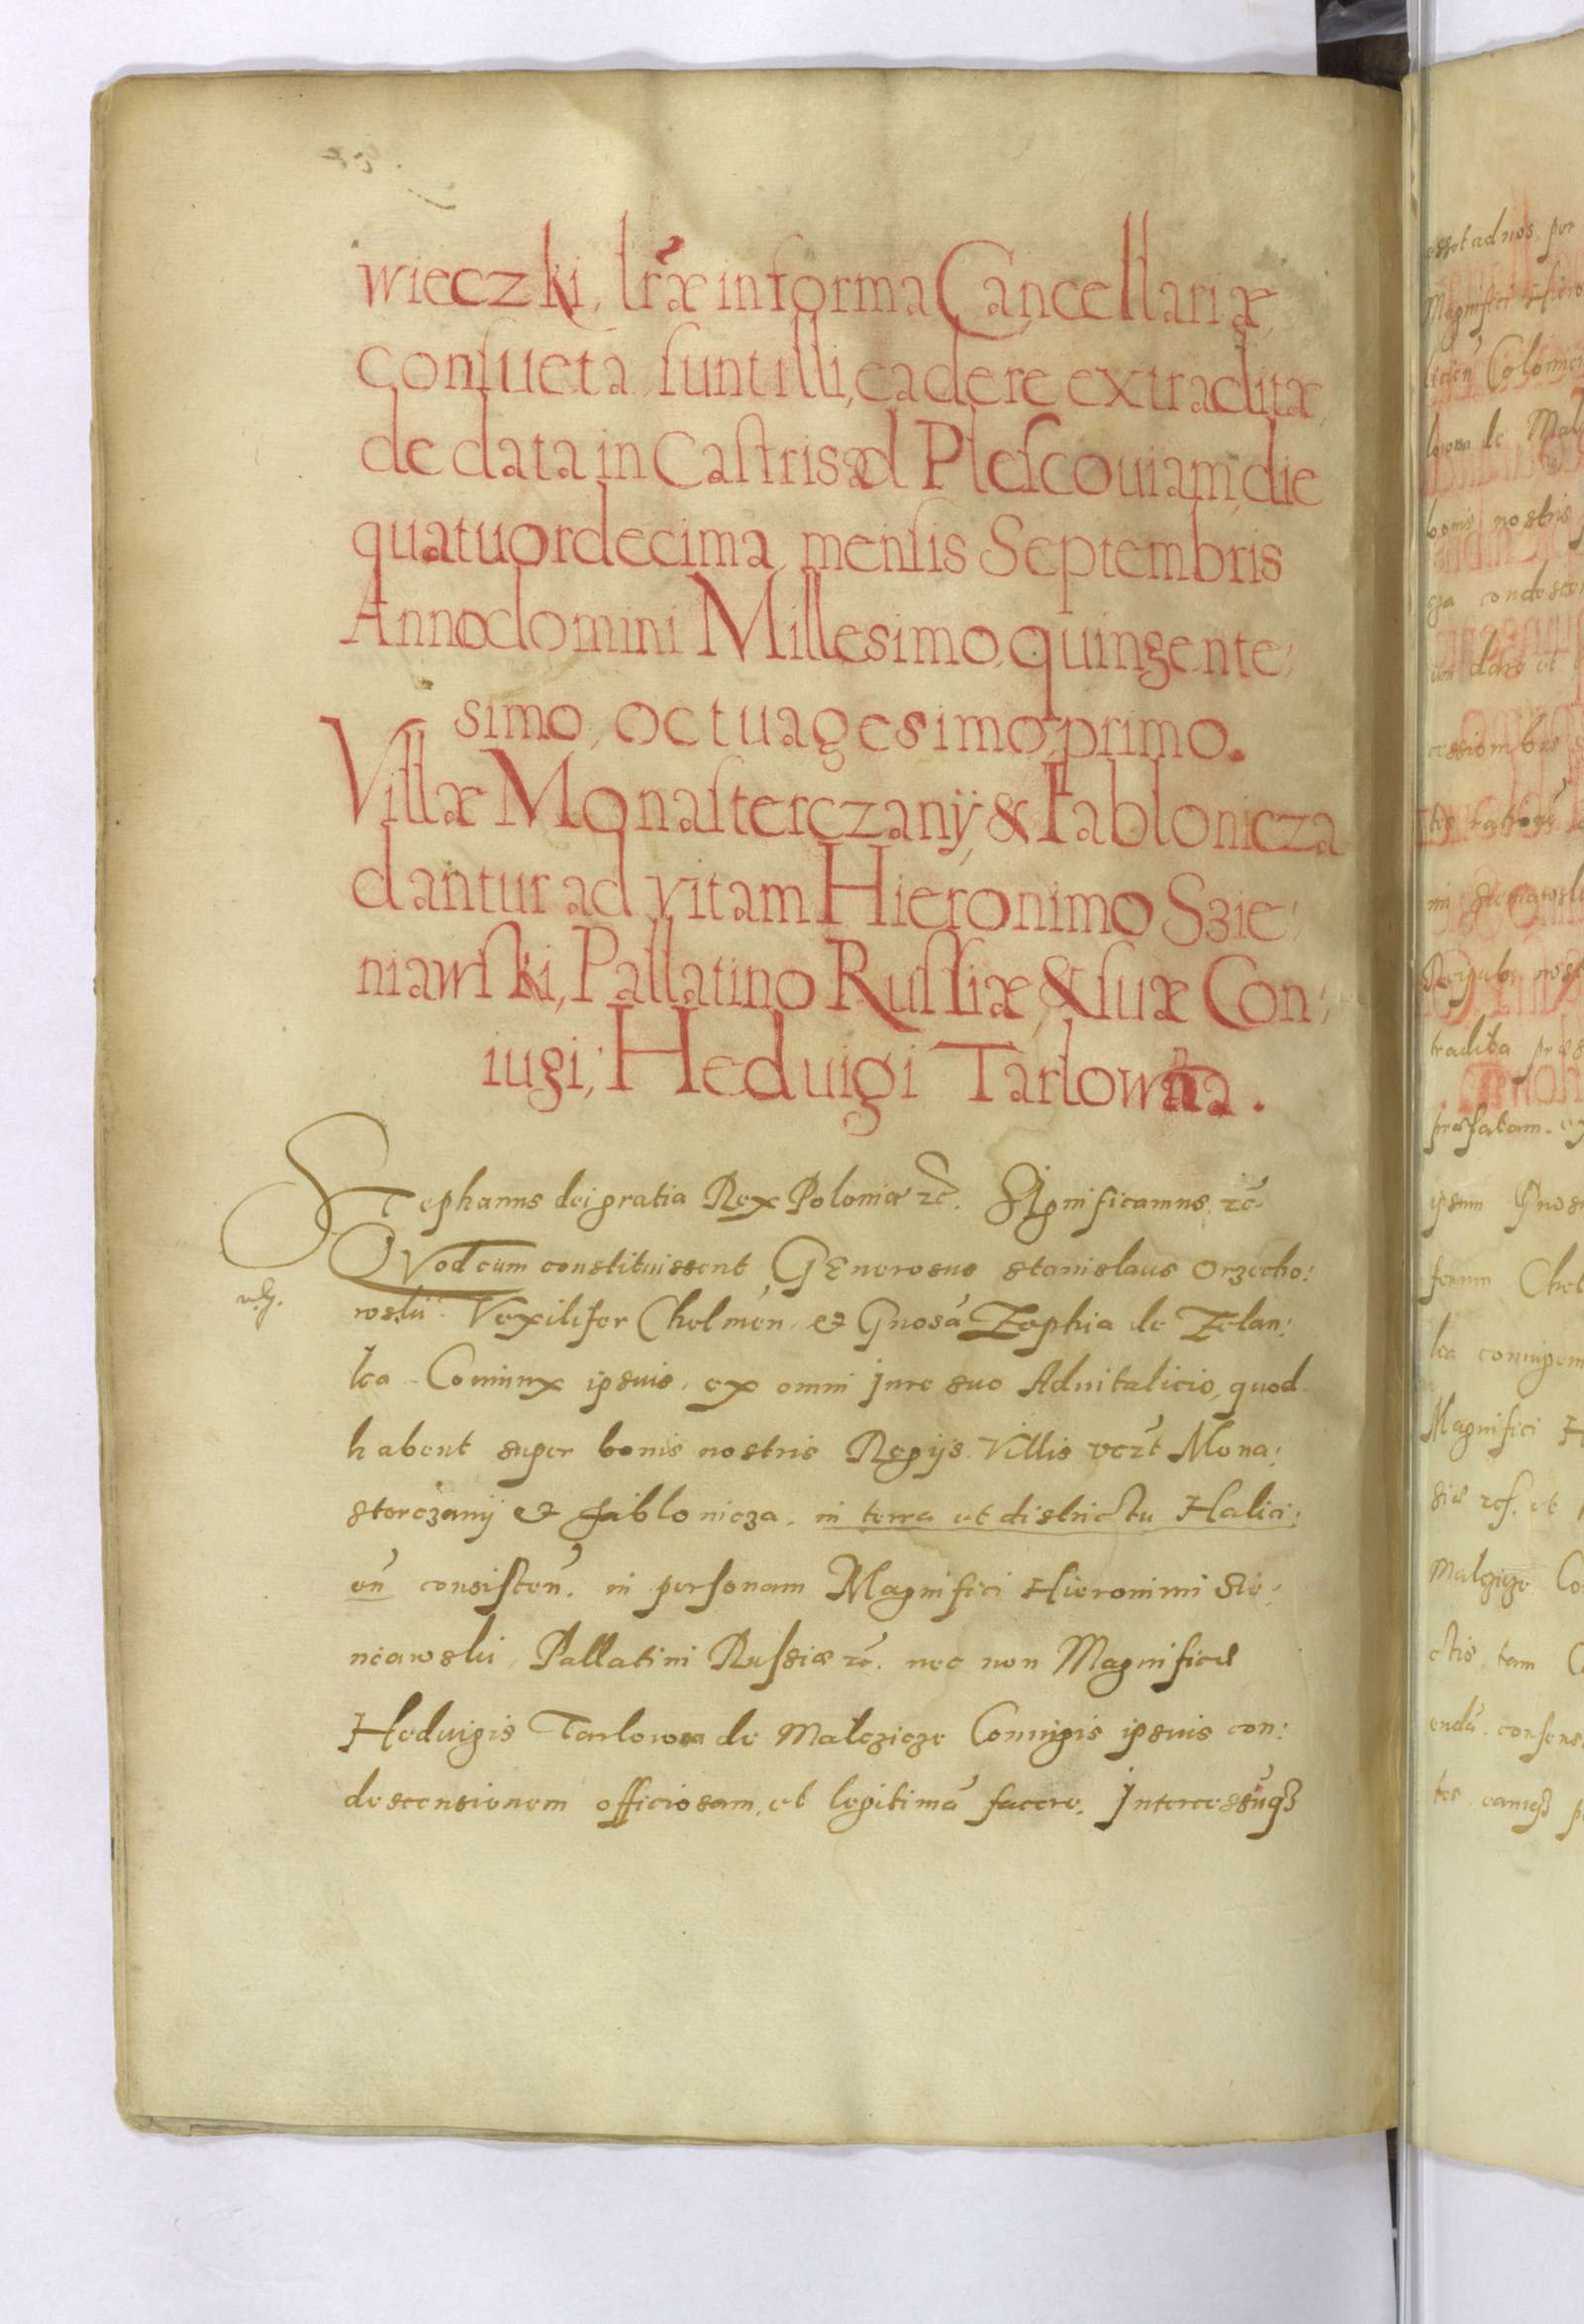 wieczki, lr̃æ in forma Cancellariæ,
consueta sunt illi, ea de re extraditæ,
de data in Castris ad Plescouiam, die
quatuordecima, mensis Septembris
Anno domini Millesimo, quingente:
simo, octuagesimo, primo.
Villæ Monasterczanÿ, & Iablonicza
dantur ad vitam Hieronimo Szie:
niawski, Pallatino Russiæ, & suæ Con:
iugi, Heduigi Tarlowna.
Stephanus dei gratia Rex Poloniæ etc̃. Significamus, etc̃.
Quod cum constituissent Generosus Stanislaus Orzecho:
wski Vexilifer Chelmen̄. et Gnosā Zophia de Zelan:
ka Coniunx ipsuis, ex omni Jure suo Aduitalicio, quod
habent super bonis nostris Regijs Villis vczt̃ Mona:
sterczanij et Jablonicza, in terra et districtu Halici:
en̄ consisten̄. in personam Magnifici Hieronimi Sie:
niawski, Pallatini Russiæ etc̃. nec non Magnificæ
Heduigis Tarlowna de Malczicze Coniugis ipsuis con:
descensionem officiosam, et legitimā facere, Intercessūqꝫ
esset ad nos, per
Magnifici Hiero
Colomei
de Mal
bonis nostris
condescen
dare et
cessionibus
tradita
præfatam
ipsum Gnos
ferum Chel
ka coniugem
Magnifici H
Malczicze Co
ctis, tam